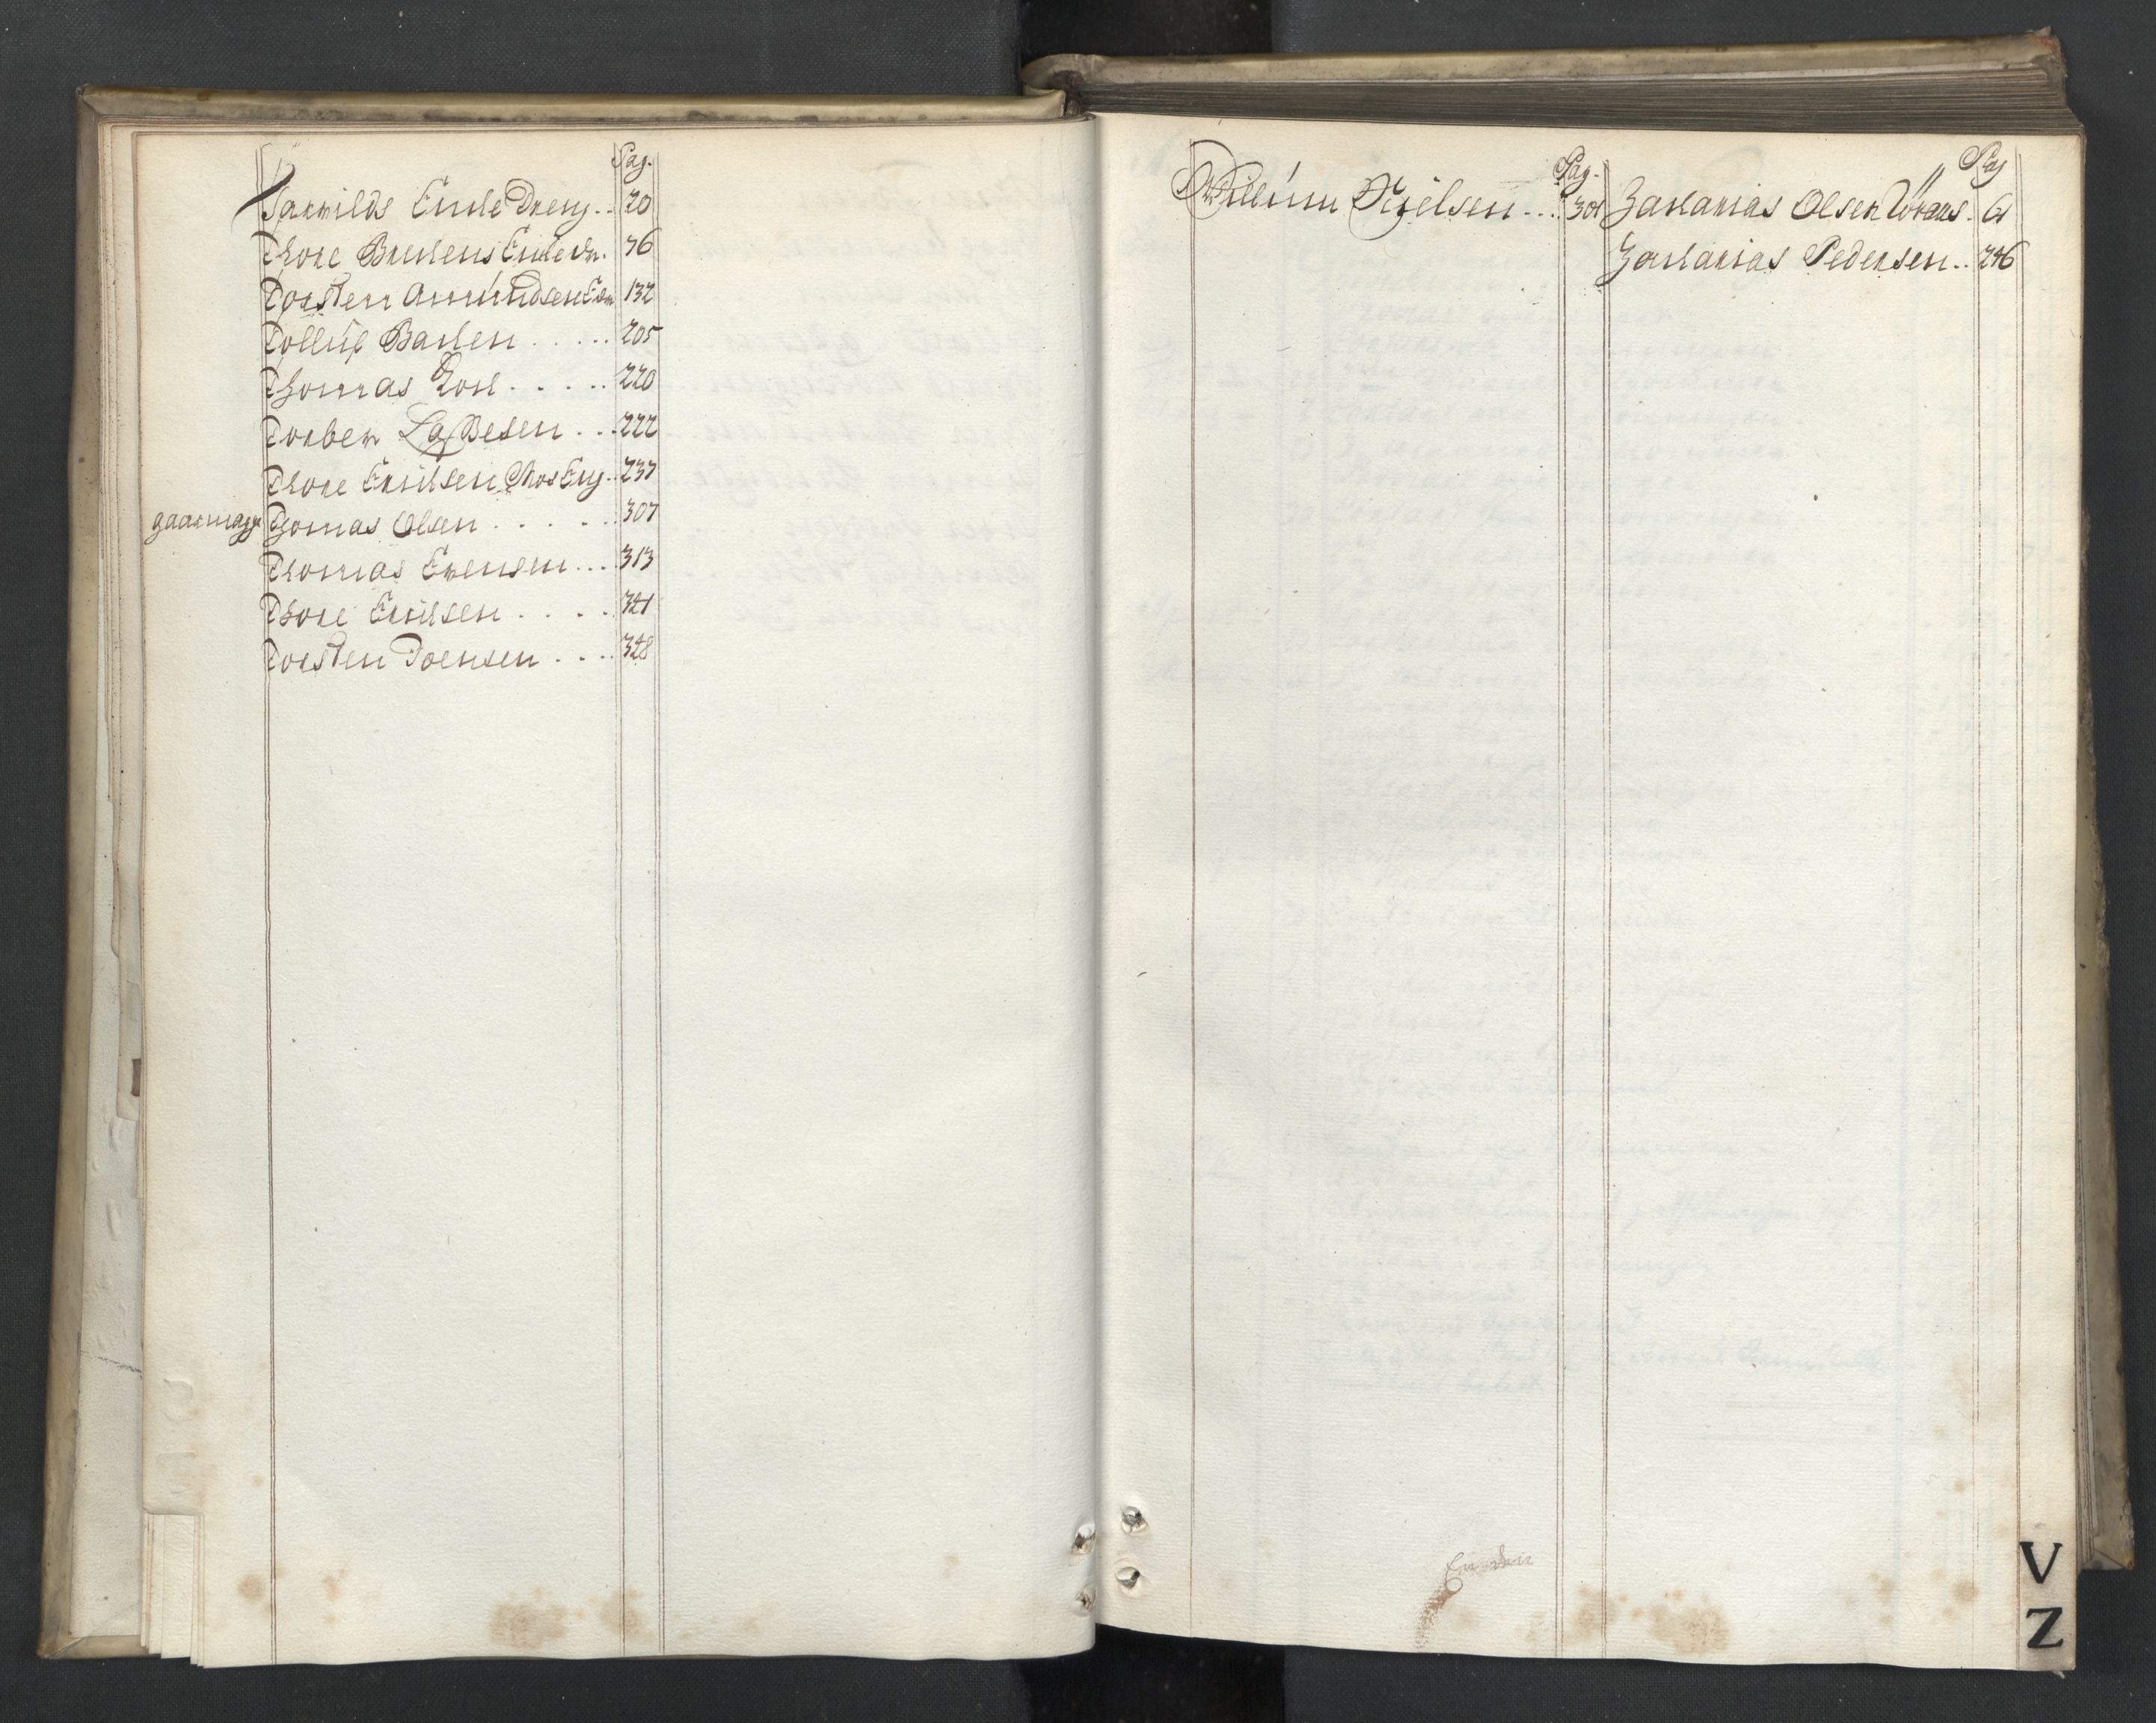 Pag.
Tarvilds Encke Dreng.. 20
Thore Brechens Encke 76
Torsten Amundsen 132
Tollup Bachen ..... 205
Thomas ..... 220
Torber Laszesen ... 222
Thore Erichsen MosEng.. 237
gaarmage Thomas Olsen ...... 307
Thomas Evensen ... 313
Thore Erichsen ..... 321
Torsten Joensen .... 328
Pag.
Willum Nielsen ... 301
Pag
Zacharias Olsen . 61
Zacharias Pedersen .. 246
V
Z